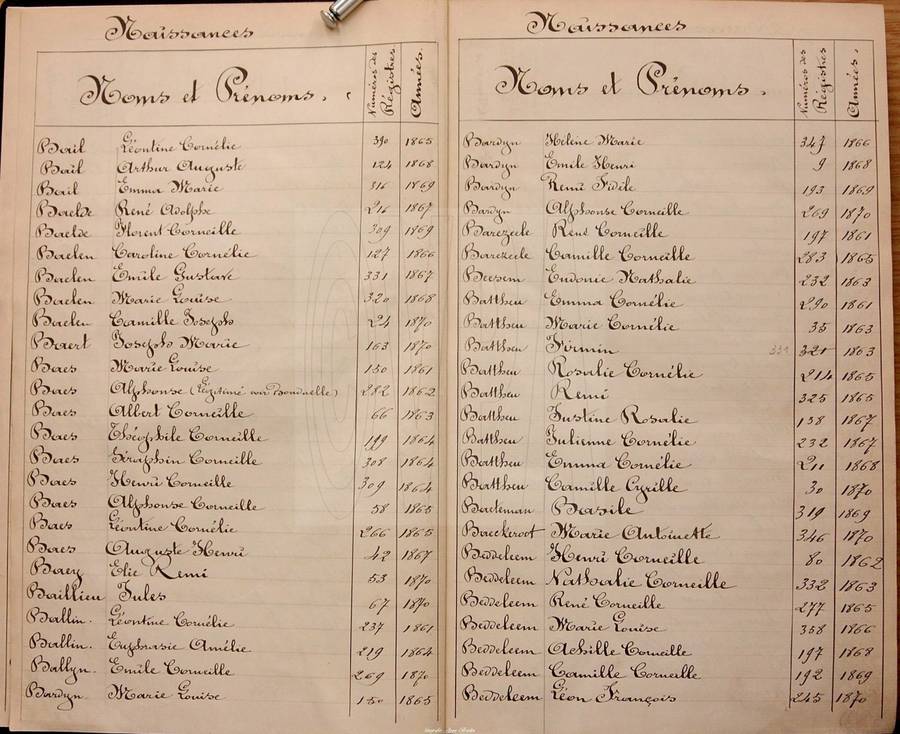 Naissances
Noms et Prénoms. Numéros des Régistres Années.
Bail Léontine Cornélie 390 1865
Bail Arthur Auguste 124 1868
Bail Emma Marie 316 1869
Baelde René Adolphe 216 1867
Baelde Florent Corneille 309 1869
Baelen Caroline Cornélie 127 1866
Baelen Emile Gustave 331 1867
Baelen Marie Louise 320 1868
Baelen Camille Joseph 24 1870
Baert Joseph Marie 163 1870
Baes Marie Louise 150 1861
Baes Alphonse (Légitimé van Bondaelle) 282 1862
Baes Albert Corneille 66 1863
Baes Théophile Corneille 199 1864
Baes Séraphin Corneille 308 1864
Baes Henri Corneille 309 1864
Baes Alphonse Corneille 58 1865
Baes Léontine Cornélie 266 1865
Baes Auguste Henri 42 1867
Baey Elie Remi 53 1870
Baillieu Jules 67 1870
Ballin. Léontine Cornélie 237 1861
Ballin. Euphrasie Amélie 219 1864
Ballyn Emile Corneille 269 1870
Bardyn Marie Louise 150 1865
Naissances
Noms et Prénoms. Numéros des Régistres Années.
Bardyn Hélène Marie 347 1866
Bardyn Emile Henri 9 1868
Bardyn Remi Fidèle 193 1869
Bardyn Alphonse Corneille 269 1870
Barezeele René Corneille 197 1861
Barezeele Camille Corneille 283 1865
Eudonie Nathalie 232 1863
Battheu Emma Cornélie 290 1861
Battheu Marie Cornélie 35 1863
Battheu Firmin 331 321 1863
Battheu Rosalie Cornélie 214 1865
Battheu Remi 325 1865
Battheu Justine Rosalie 158 1867
Battheu Julienne Cornélie 232 1867
Battheu Emma Cornélie 211 1868
Battheu Camille Cyrille 30 1870
Bateman Basile 319 1869
Baeckeroot Marie Antoinette 346 1870
Beddeleem Henri Corneille 80 1862
Beddeleem Nathalie Corneille 332 1863
Beddeleem René Corneille 277 1865
Beddeleem Marie Louise 358 1866
Beddeleem Achille Corneille 197 1868
Beddeleem Camille Corneille 192 1869
Beddeleem Léon François 245 1870